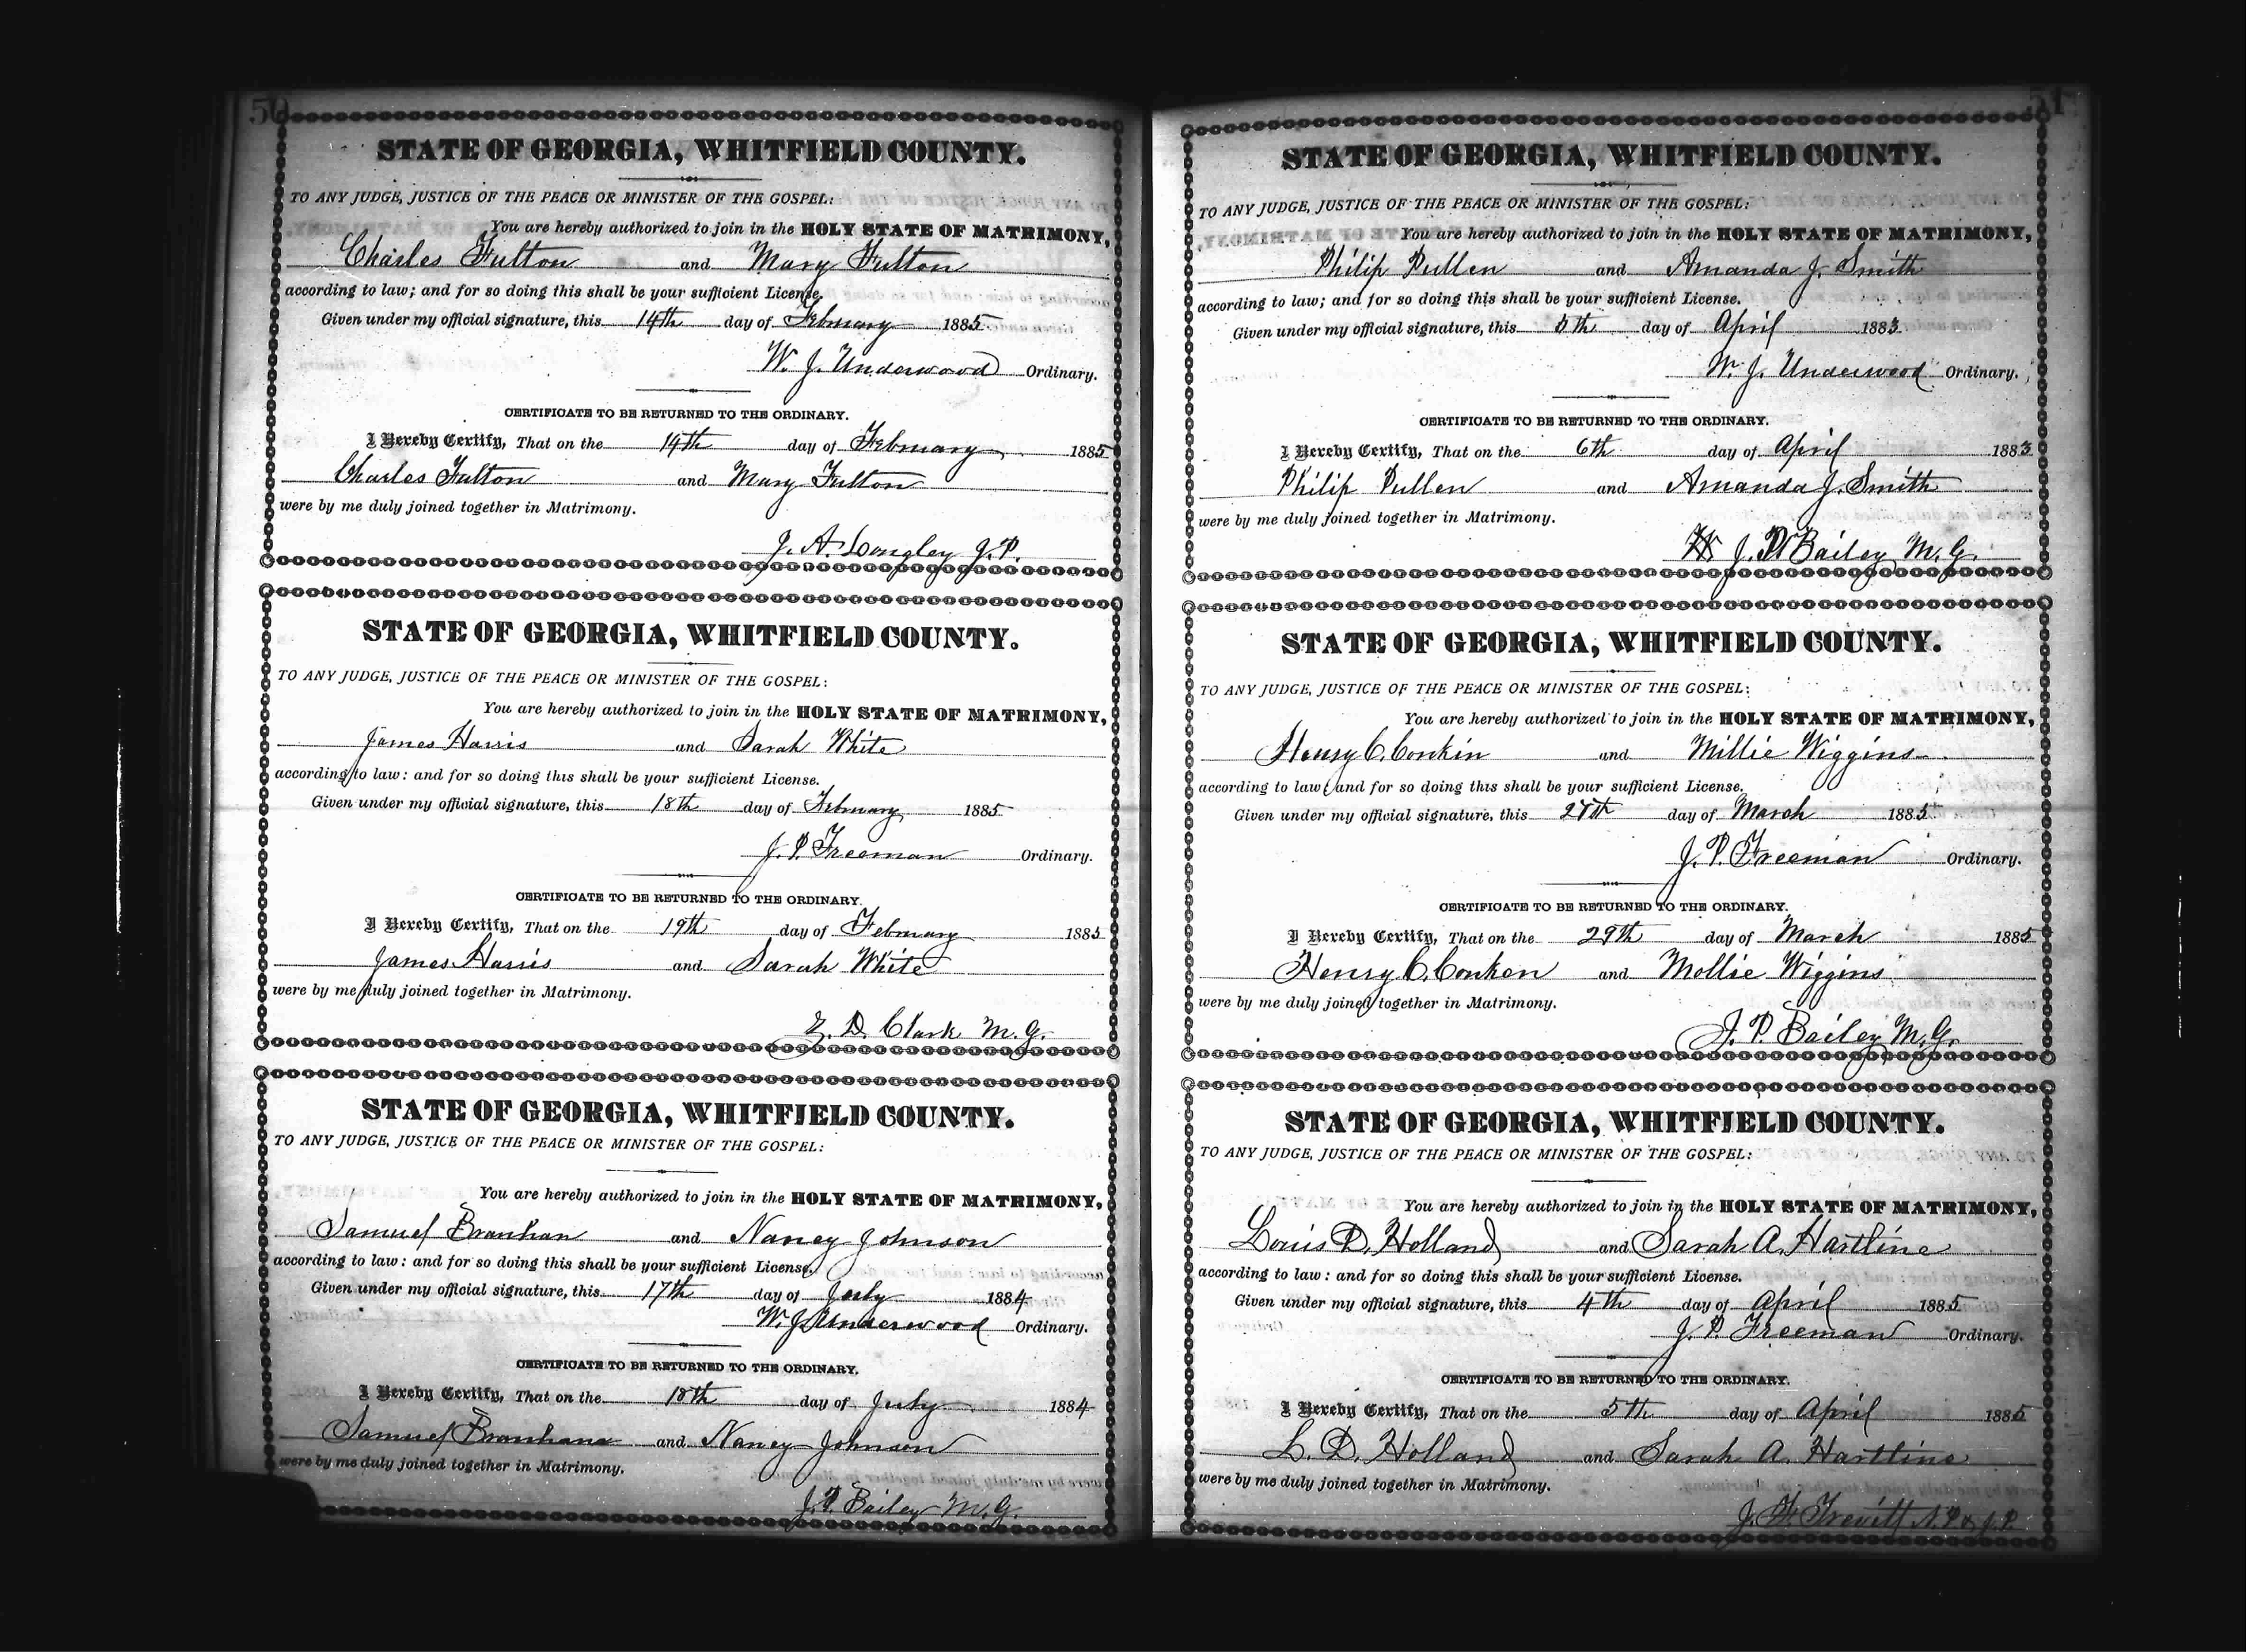 50
STATE OF GEORGIA, WHITFIELD COUNTY.
TO ANY JUDGE, JUSTICE OF THE PEACE OR MINISTER OF THE GOSPEL:
You are hereby authorized to join in the HOLY STATE OF MATRIMONY,
Charles Fulton and Mary Fulton
according to law; and for so doing this shall be your sufficient License.
Given under my official signature, this 14th day of February 1885
W. J. Underwood Ordinary.
CERTIFICATE TO BE RETURNED TO THE ORDINARY.
I Hereby Certify, That on the 14th day of February 1885
Charles Fulton and Mary Fulton
were by me duly joined together in Matrimony.
J. A. Longley J.P.
STATE OF GEORGIA, WHITFIELD COUNTY.
TO ANY JUDGE, JUSTICE OF THE PEACE OR MINISTER OF THE GOSPEL:
You are hereby authorized to join in the HOLY STATE OF MATRIMONY,
James Harris and Sarah White
according to law: and for so doing this shall be your sufficient License.
Given under my official signature, this 18th day of February 1885
J. P. Freeman Ordinary.
CERTIFICATE TO BE RETURNED TO THE ORDINARY.
I Hereby Certify, That on the 19th day of February 1885
James Harris and Sarah White
were by me duly joined together in Matrimony.
D. Clark M.G.
STATE OF GEORGIA, WHITFIELD COUNTY.
TO ANY JUDGE, JUSTICE OF THE PEACE OR MINISTER OF THE GOSPEL:
You are hereby authorized to join in the HOLY STATE OF MATRIMONY,
Samuel Branhan and Nancy Johnson
according to law: and for so doing this shall be your sufficient License.
Given under my official signature, this 17th day of July 1884
W. J. Underwood Ordinary.
CERTIFICATE TO BE RETURNED TO THE ORDINARY.
I Hereby Certify, That on the 18th day of July 1884
Samuel Branhana and Nancy Johnson
were by me duly joined together in Matrimony.
J. P. Bailey M.G.
51
STATE OF GEORGIA, WHITFIELD COUNTY.
TO ANY JUDGE, JUSTICE OF THE PEACE OR MINISTER OF THE GOSPEL:
You are hereby authorized to join in the HOLY STATE OF MATRIMONY,
Philip Pullen and Amanda J. Smith
according to law; and for so doing this shall be your sufficient License.
Given under my official signature, this 5th day of April 1883
W. J. Underwood Ordinary.
CERTIFICATE TO BE RETURNED TO THE ORDINARY.
I Hereby Certify, That on the 6th day of April 1883
Philip Pullen and Amanda J. Smith
were by me duly joined together in Matrimony.
J. P. Bailey M.G.
STATE OF GEORGIA, WHITFIELD COUNTY.
TO ANY JUDGE, JUSTICE OF THE PEACE OR MINISTER OF THE GOSPEL:
You are hereby authorized to join in the HOLY STATE OF MATRIMONY,
Henry C. Conkin and Millie Wiggins
according to law; and for so doing this shall be your sufficient License.
Given under my official signature, this 27th day of March 1885
J. P. Freeman Ordinary.
CERTIFICATE TO BE RETURNED TO THE ORDINARY.
I Hereby Certify, That on the 29th day of March 1885
Henry C. Conken and Mollie Wiggins
were by me duly joined together in Matrimony.
J. P. Bailey M.G.
STATE OF GEORGIA, WHITFIELD COUNTY.
TO ANY JUDGE, JUSTICE OF THE PEACE OR MINISTER OF THE GOSPEL:
You are hereby authorized to join in the HOLY STATE OF MATRIMONY,
Louis D. Holland and Sarah A. Hartline
according to law: and for so doing this shall be your sufficient License.
Given under my official signature, this 4th day of April 1885
J. P. Freeman Ordinary.
CERTIFICATE TO BE RETURNED TO THE ORDINARY.
I Hereby Certify, That on the 5th day of April 1885
L. D. Holland and Sarah A. Hartline
were by me duly joined together in Matrimony.
J. F. Trevitt N.P. & J.P.